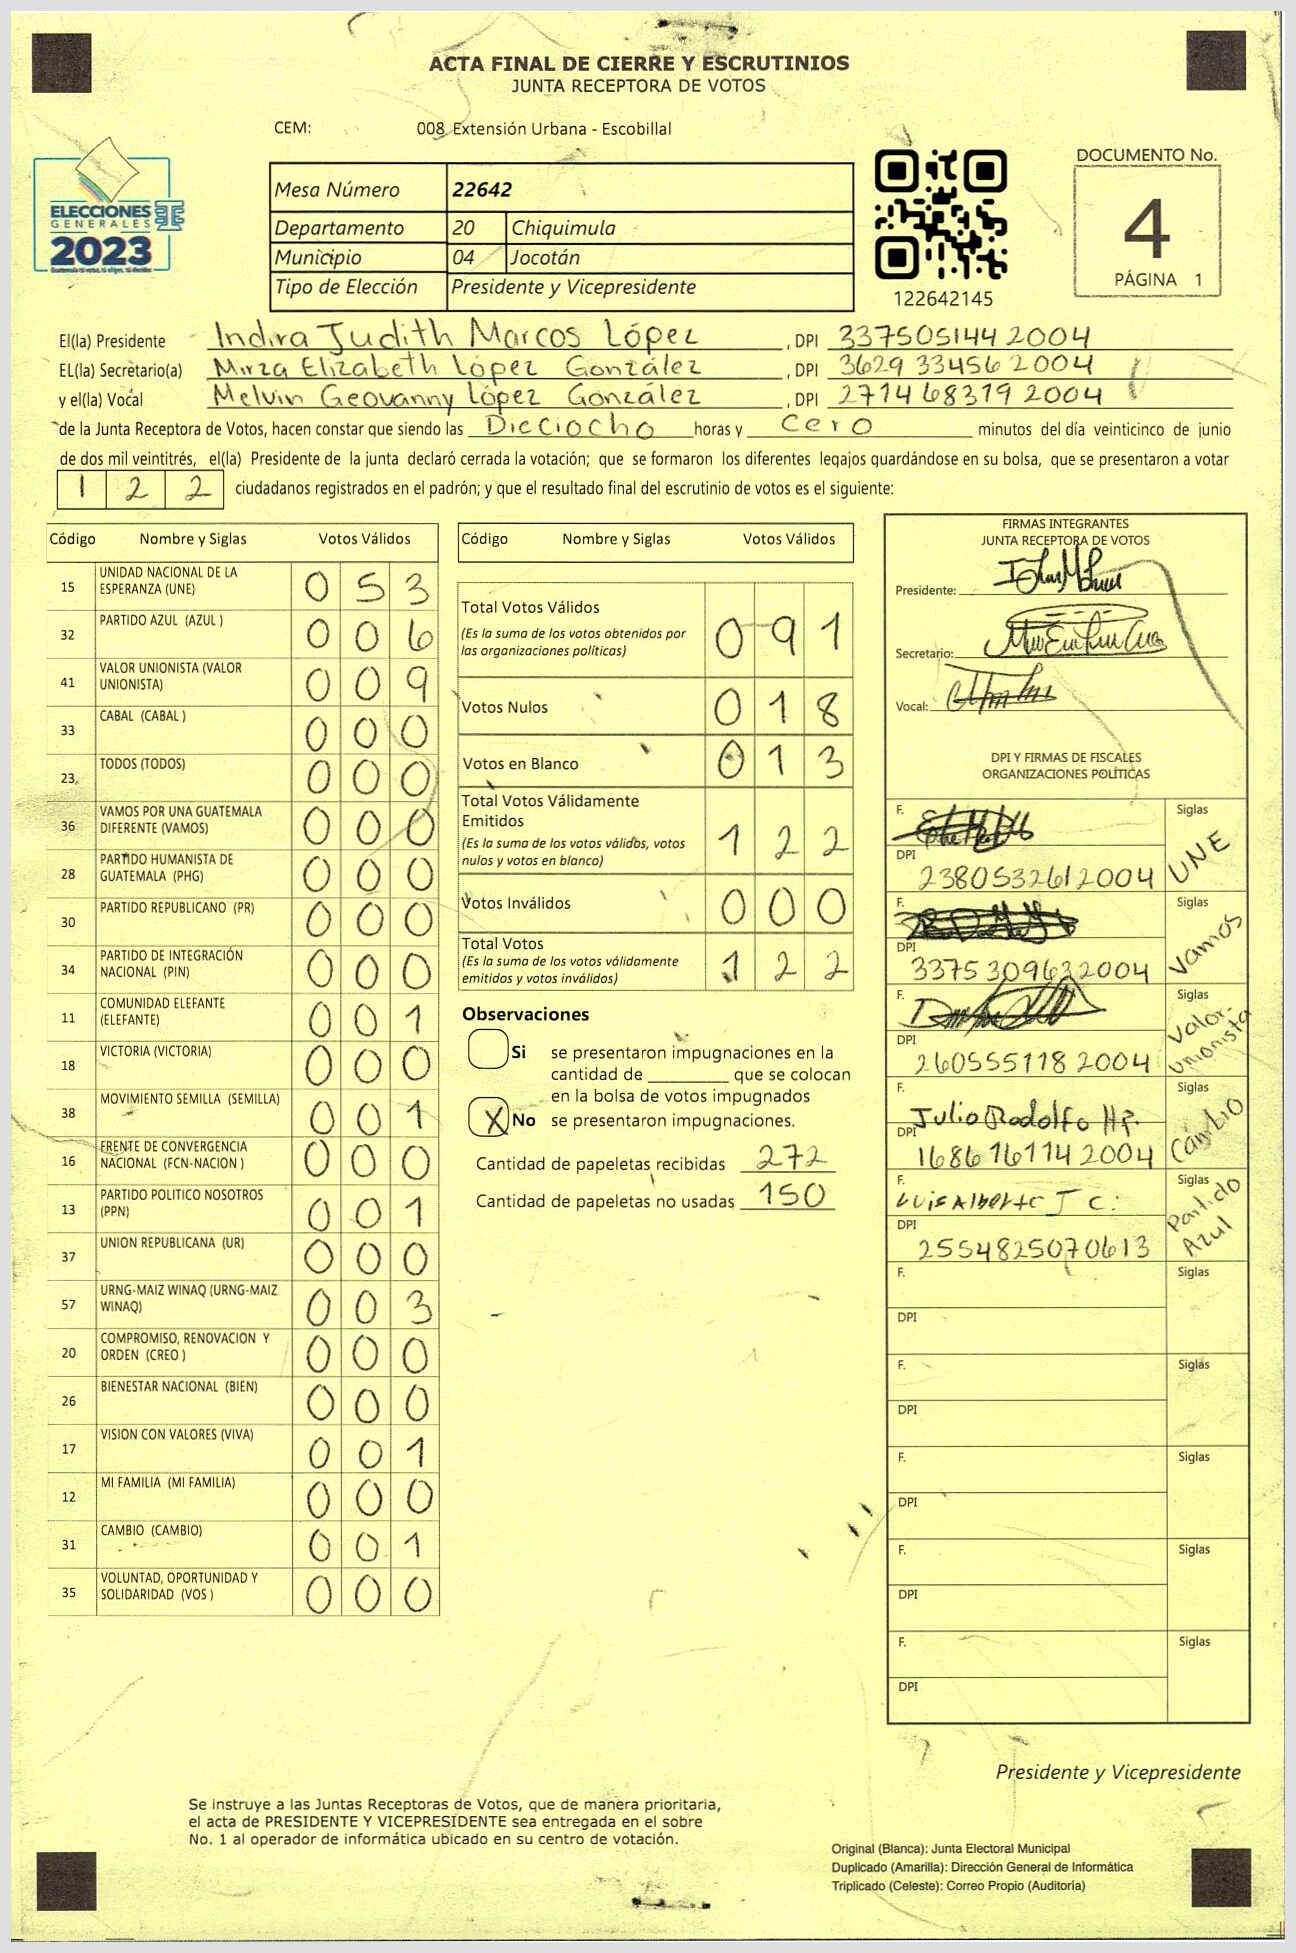 ACTA FINAL DE CIERRE Y ESCRUTINIOS
JUNTA RECEPTORA DE VOTOS
CEM: 008 Extensión Urbana - Escobillal
ELECCIONES
GENERALES
2023
Mesa Número 22642
Departamento 20 Chiquimula
Municipio 04 Jocotán
Tipo de Elección Presidente y Vicepresidente
122642145
DOCUMENTO No.
4
PÁGINA 1
El(la) Presidente Indira Judith Marcos López , DPI 337505144 2004
EL(la) Secretario(a) Mirza Elizabeth López González , DPI 3629 33456 2004
y el(la) Vocal Melvin Geovanny López González , DPI 2714 68319 2004
de la Junta Receptora de Votos, hacen constar que siendo las Dieciocho horas y cero minutos del día veinticinco de junio
de dos mil veintitrés, el(la) Presidente de la junta declaró cerrada la votación; que se formaron los diferentes legajos guardándose en su bolsa, que se presentaron a votar
1 2 2 ciudadanos registrados en el padrón; y que el resultado final del escrutinio de votos es el siguiente:
Código Nombre y Siglas Votos Válidos
15 UNIDAD NACIONAL DE LA ESPERANZA (UNE) 0 5 3
32 PARTIDO AZUL (AZUL ) 0 0 6
41 VALOR UNIONISTA (VALOR UNIONISTA) 0 0 9
33 CABAL (CABAL ) 0 0 0
23 TODOS (TODOS) 0 0 0
36 VAMOS POR UNA GUATEMALA DIFERENTE (VAMOS) 0 0 0
28 PARTIDO HUMANISTA DE GUATEMALA (PHG) 0 0 0
30 PARTIDO REPUBLICANO (PR) 0 0 0
34 PARTIDO DE INTEGRACIÓN NACIONAL (PIN) 0 0 0
11 COMUNIDAD ELEFANTE (ELEFANTE) 0 0 1
18 VICTORIA (VICTORIA) 0 0 0
38 MOVIMIENTO SEMILLA (SEMILLA) 0 0 1
16 FRENTE DE CONVERGENCIA NACIONAL (FCN-NACION ) 0 0 0
13 PARTIDO POLITICO NOSOTROS (PPN) 0 0 1
37 UNION REPUBLICANA (UR) 0 0 0
57 URNG-MAIZ WINAQ (URNG-MAIZ WINAQ) 0 0 3
20 COMPROMISO, RENOVACION Y ORDEN (CREO ) 0 0 0
26 BIENESTAR NACIONAL (BIEN) 0 0 0
17 VISION CON VALORES (VIVA) 0 0 1
12 MI FAMILIA (MI FAMILIA) 0 0 0
31 CAMBIO (CAMBIO) 0 0 1
35 VOLUNTAD, OPORTUNIDAD Y SOLIDARIDAD (VOS ) 0 0 0
Código Nombre y Siglas Votos Válidos
Total Votos Válidos 0 9 1
(Es la suma de los votos obtenidos por
las organizaciones políticas)
Votos Nulos 0 1 8
Votos en Blanco 0 1 3
Total Votos Válidamente
Emitidos 1 2 2
(Es la suma de los votos válidos, votos
nulos y votos en blanco)
Votos Inválidos 0 0 0
Total Votos 1 2 2
(Es la suma de los votos válidamente
emitidos y votos inválidos)
Observaciones
Si se presentaron impugnaciones en la
cantidad de ________ que se colocan
en la bolsa de votos impugnados
X No se presentaron impugnaciones.
Cantidad de papeletas recibidas 272
Cantidad de papeletas no usadas 150
FIRMAS INTEGRANTES
JUNTA RECEPTORA DE VOTOS
Presidente:
Secretario:
Vocal:
DPI Y FIRMAS DE FISCALES
ORGANIZACIONES POLÍTICAS
F. Siglas
DPI 2380532612004 UNE
F. Siglas
DPI 3375309632004 Vamos
F. Siglas
DPI 260555118 2004 Valor Unionista
F. Julio Rodolfo Siglas
DPI 1686 16114 2004 Cambio
F. Luis Alberto J C. Siglas
DPI 2554825070613 Partido Azul
F. Siglas
DPI
F. Siglas
DPI
F. Siglas
DPI
F. Siglas
DPI
F. Siglas
DPI
Presidente y Vicepresidente
Se instruye a las Juntas Receptoras de Votos, que de manera prioritaria,
el acta de PRESIDENTE Y VICEPRESIDENTE sea entregada en el sobre
No. 1 al operador de informática ubicado en su centro de votación.
Original (Blanca): Junta Electoral Municipal
Duplicado (Amarilla): Dirección General de Informática
Triplicado (Celeste): Correo Propio (Auditoría)